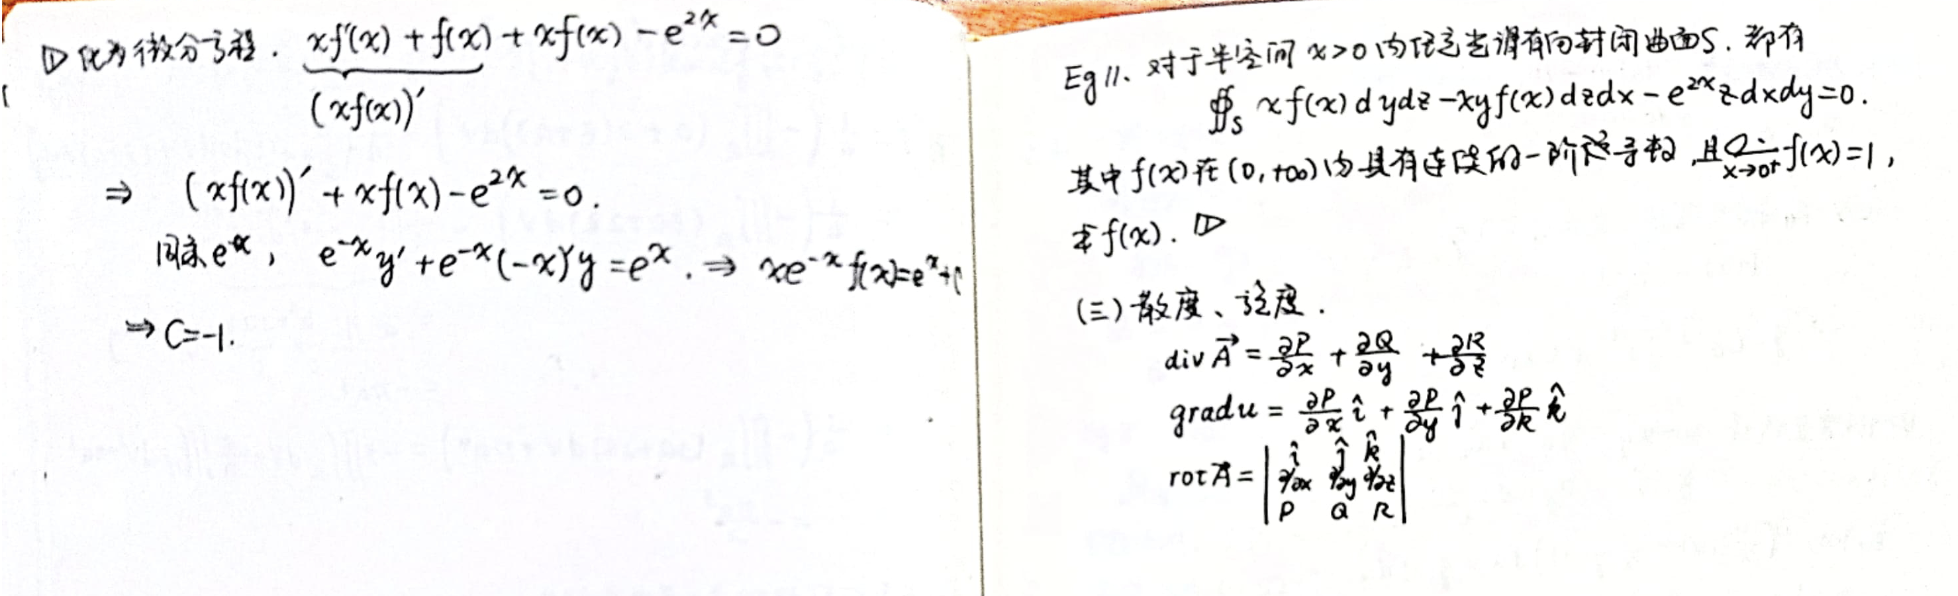 ▷ 化为微分方程. xf'(x) + f(x) + xf(x) - e^{2x} = 0
(xf(x))'
⇒ (xf(x))' + xf(x) - e^{2x} = 0.
同乘 e^{-x}, e^{-x}y' + e^{-x}(-x)'y = e^x. ⇒ xe^{-x}f(x) = e^x + C
⇒ C = -1.
Eg 11. 对于半空间 x>0 内任意光滑有向封闭曲面S. 都有
∯_S xf(x)dydz - xyf(x)dzdx - e^{2x}zdxdy = 0.
其中 f(x) 在 (0, +∞) 内具有连续的一阶导数, 且 x→0⁺ f(x) = 1,
求 f(x). ▷
(三) 散度、旋度.
div A⃗ = ∂P/∂x + ∂Q/∂y + ∂R/∂z
grad u = ∂P/∂x î + ∂P/∂y ĵ + ∂P/∂k k̂
rot A⃗ = | î ĵ k̂
∂/∂x ∂/∂y ∂/∂z
P Q R |